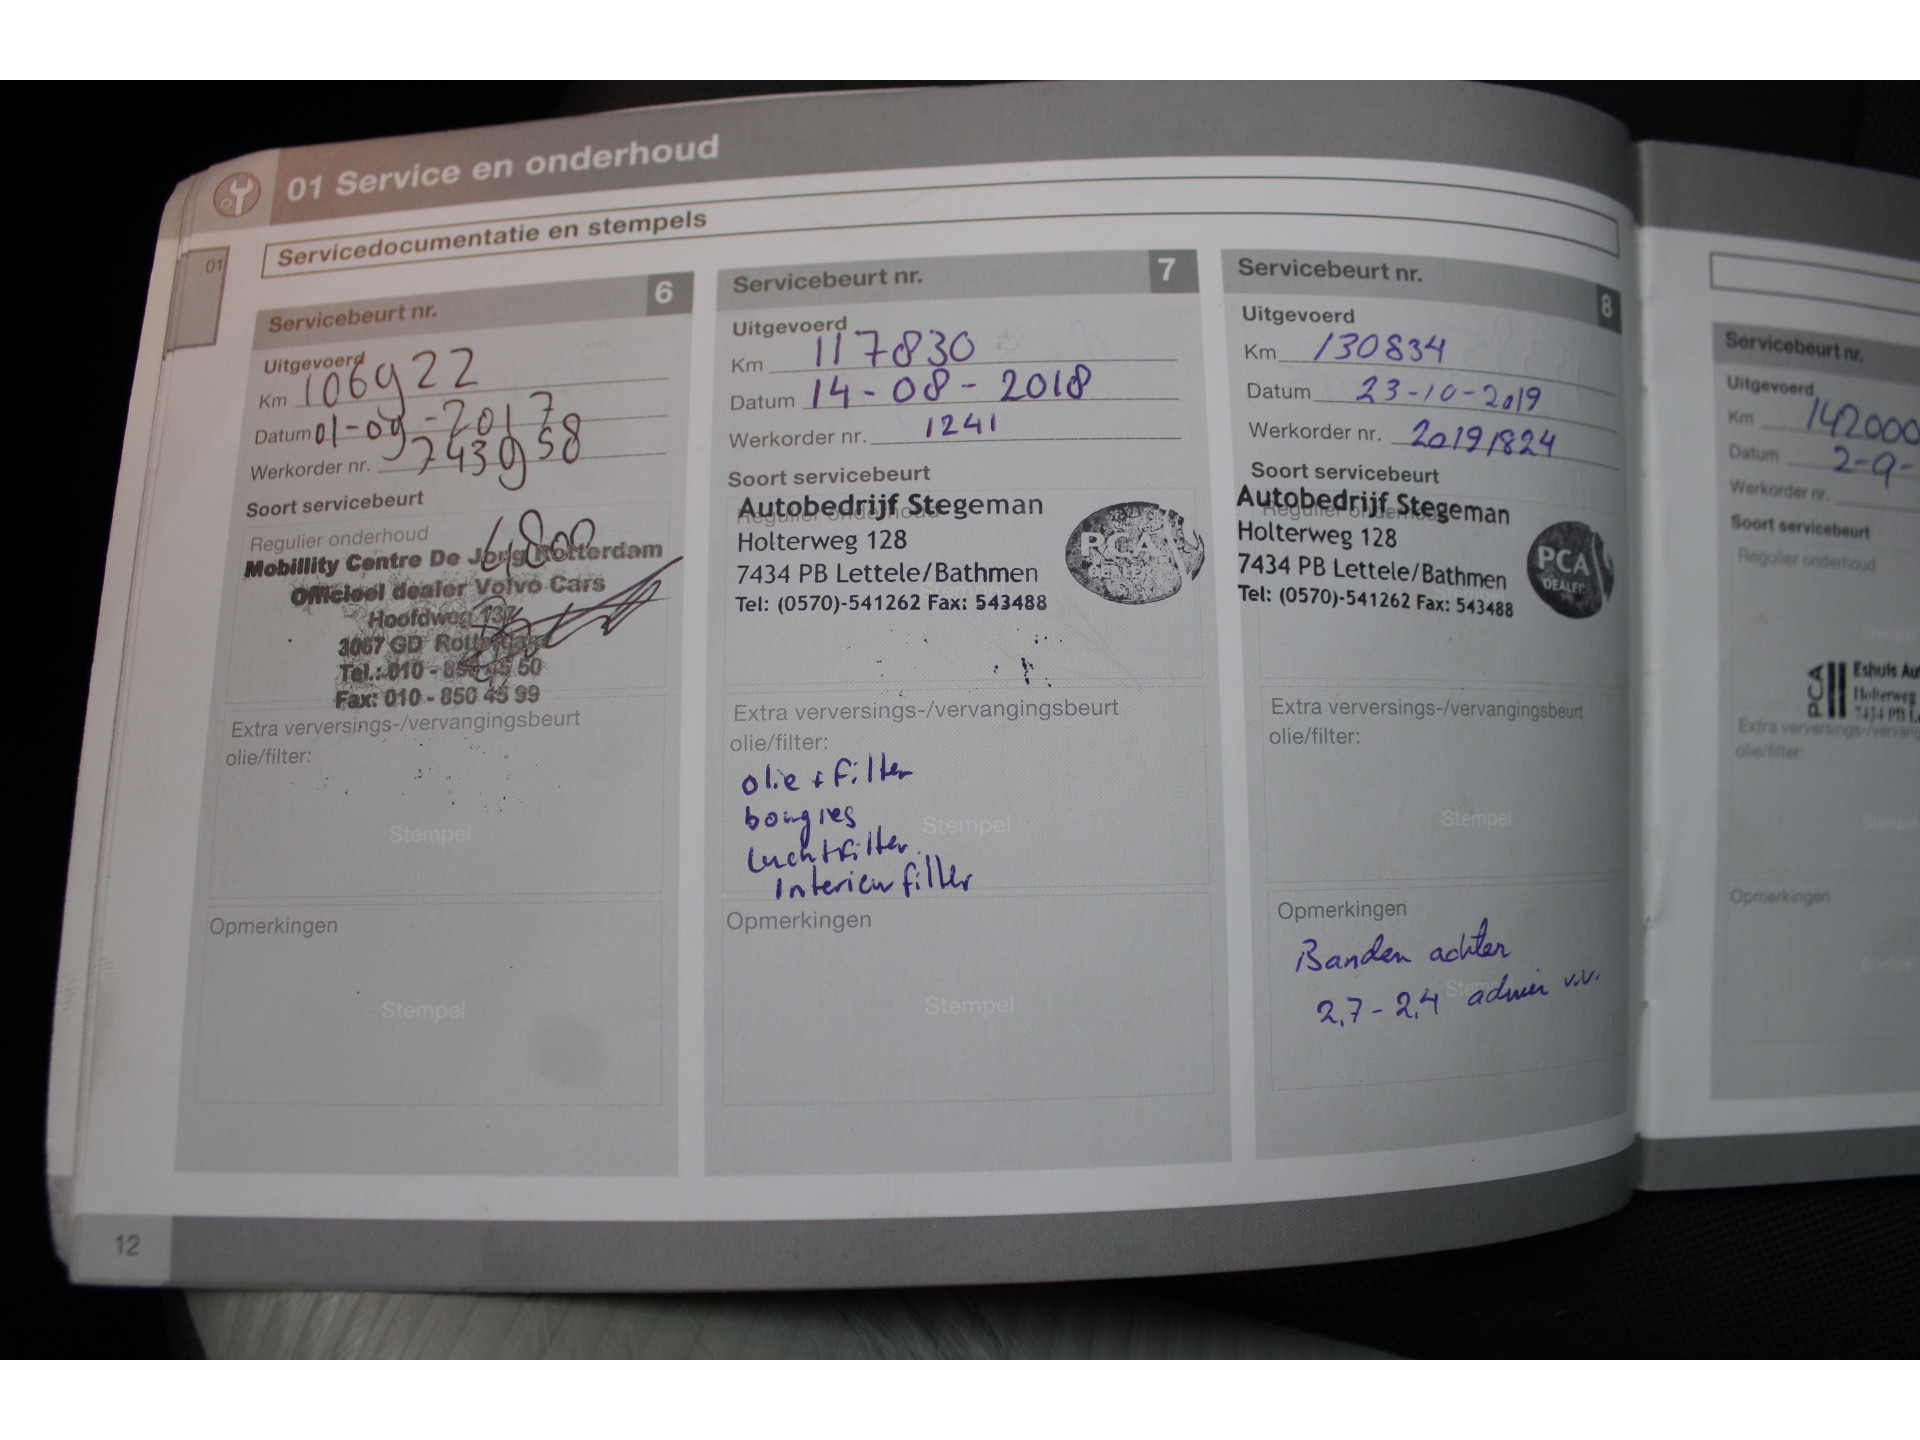 01 Service en onderhoud
Servicedocumentatie en stempels
01
Servicebeurt nr. 6
Uitgevoerd
Km 106922
Datum 01-09-2017
Werkorder nr. 7439958
Soort servicebeurt
Regulier onderhoud
Mobillity Centre De Jong Rotterdam
Officieel dealer Volvo Cars
Hoofdweg 137
3067 GD Rotterdam
Tel.: 010 - 850 45 50
Fax: 010 - 850 45 99
Extra verversings-/vervangingsbeurt
olie/filter:
Stempel
Opmerkingen
Stempel
Servicebeurt nr. 7
Uitgevoerd
Km 117830
Datum 14-08-2018
Werkorder nr. 1241
Soort servicebeurt
Regulier onderhoud
Autobedrijf Stegeman
Holterweg 128
7434 PB Lettele/Bathmen
Tel: (0570)-541262 Fax: 543488
PCA
DEALER
Extra verversings-/vervangingsbeurt
olie/filter:
olie + filter
bougies
Luchtfilter
Interieur filter
Stempel
Opmerkingen
Stempel
Servicebeurt nr. 8
Uitgevoerd
Km 130834
Datum 23-10-2019
Werkorder nr. 20191824
Soort servicebeurt
Regulier onderhoud
Autobedrijf Stegeman
Holterweg 128
7434 PB Lettele/Bathmen
Tel: (0570)-541262 Fax: 543488
PCA
DEALER
Extra verversings-/vervangingsbeurt
olie/filter:
Stempel
Opmerkingen
Banden achter
2,7 - 2,4 advies v.v.
Stempel
12
Servicebeurt nr.
Uitgevoerd
Km 142000
Datum 2-9-
Werkorder nr.
Soort servicebeurt
Regulier onderhoud
Stempel
PCA
Eshuis Au
Holterweg
7434 PB L
Extra verversings-/vervang
olie/filter:
Stempel
Opmerkingen
Stempel